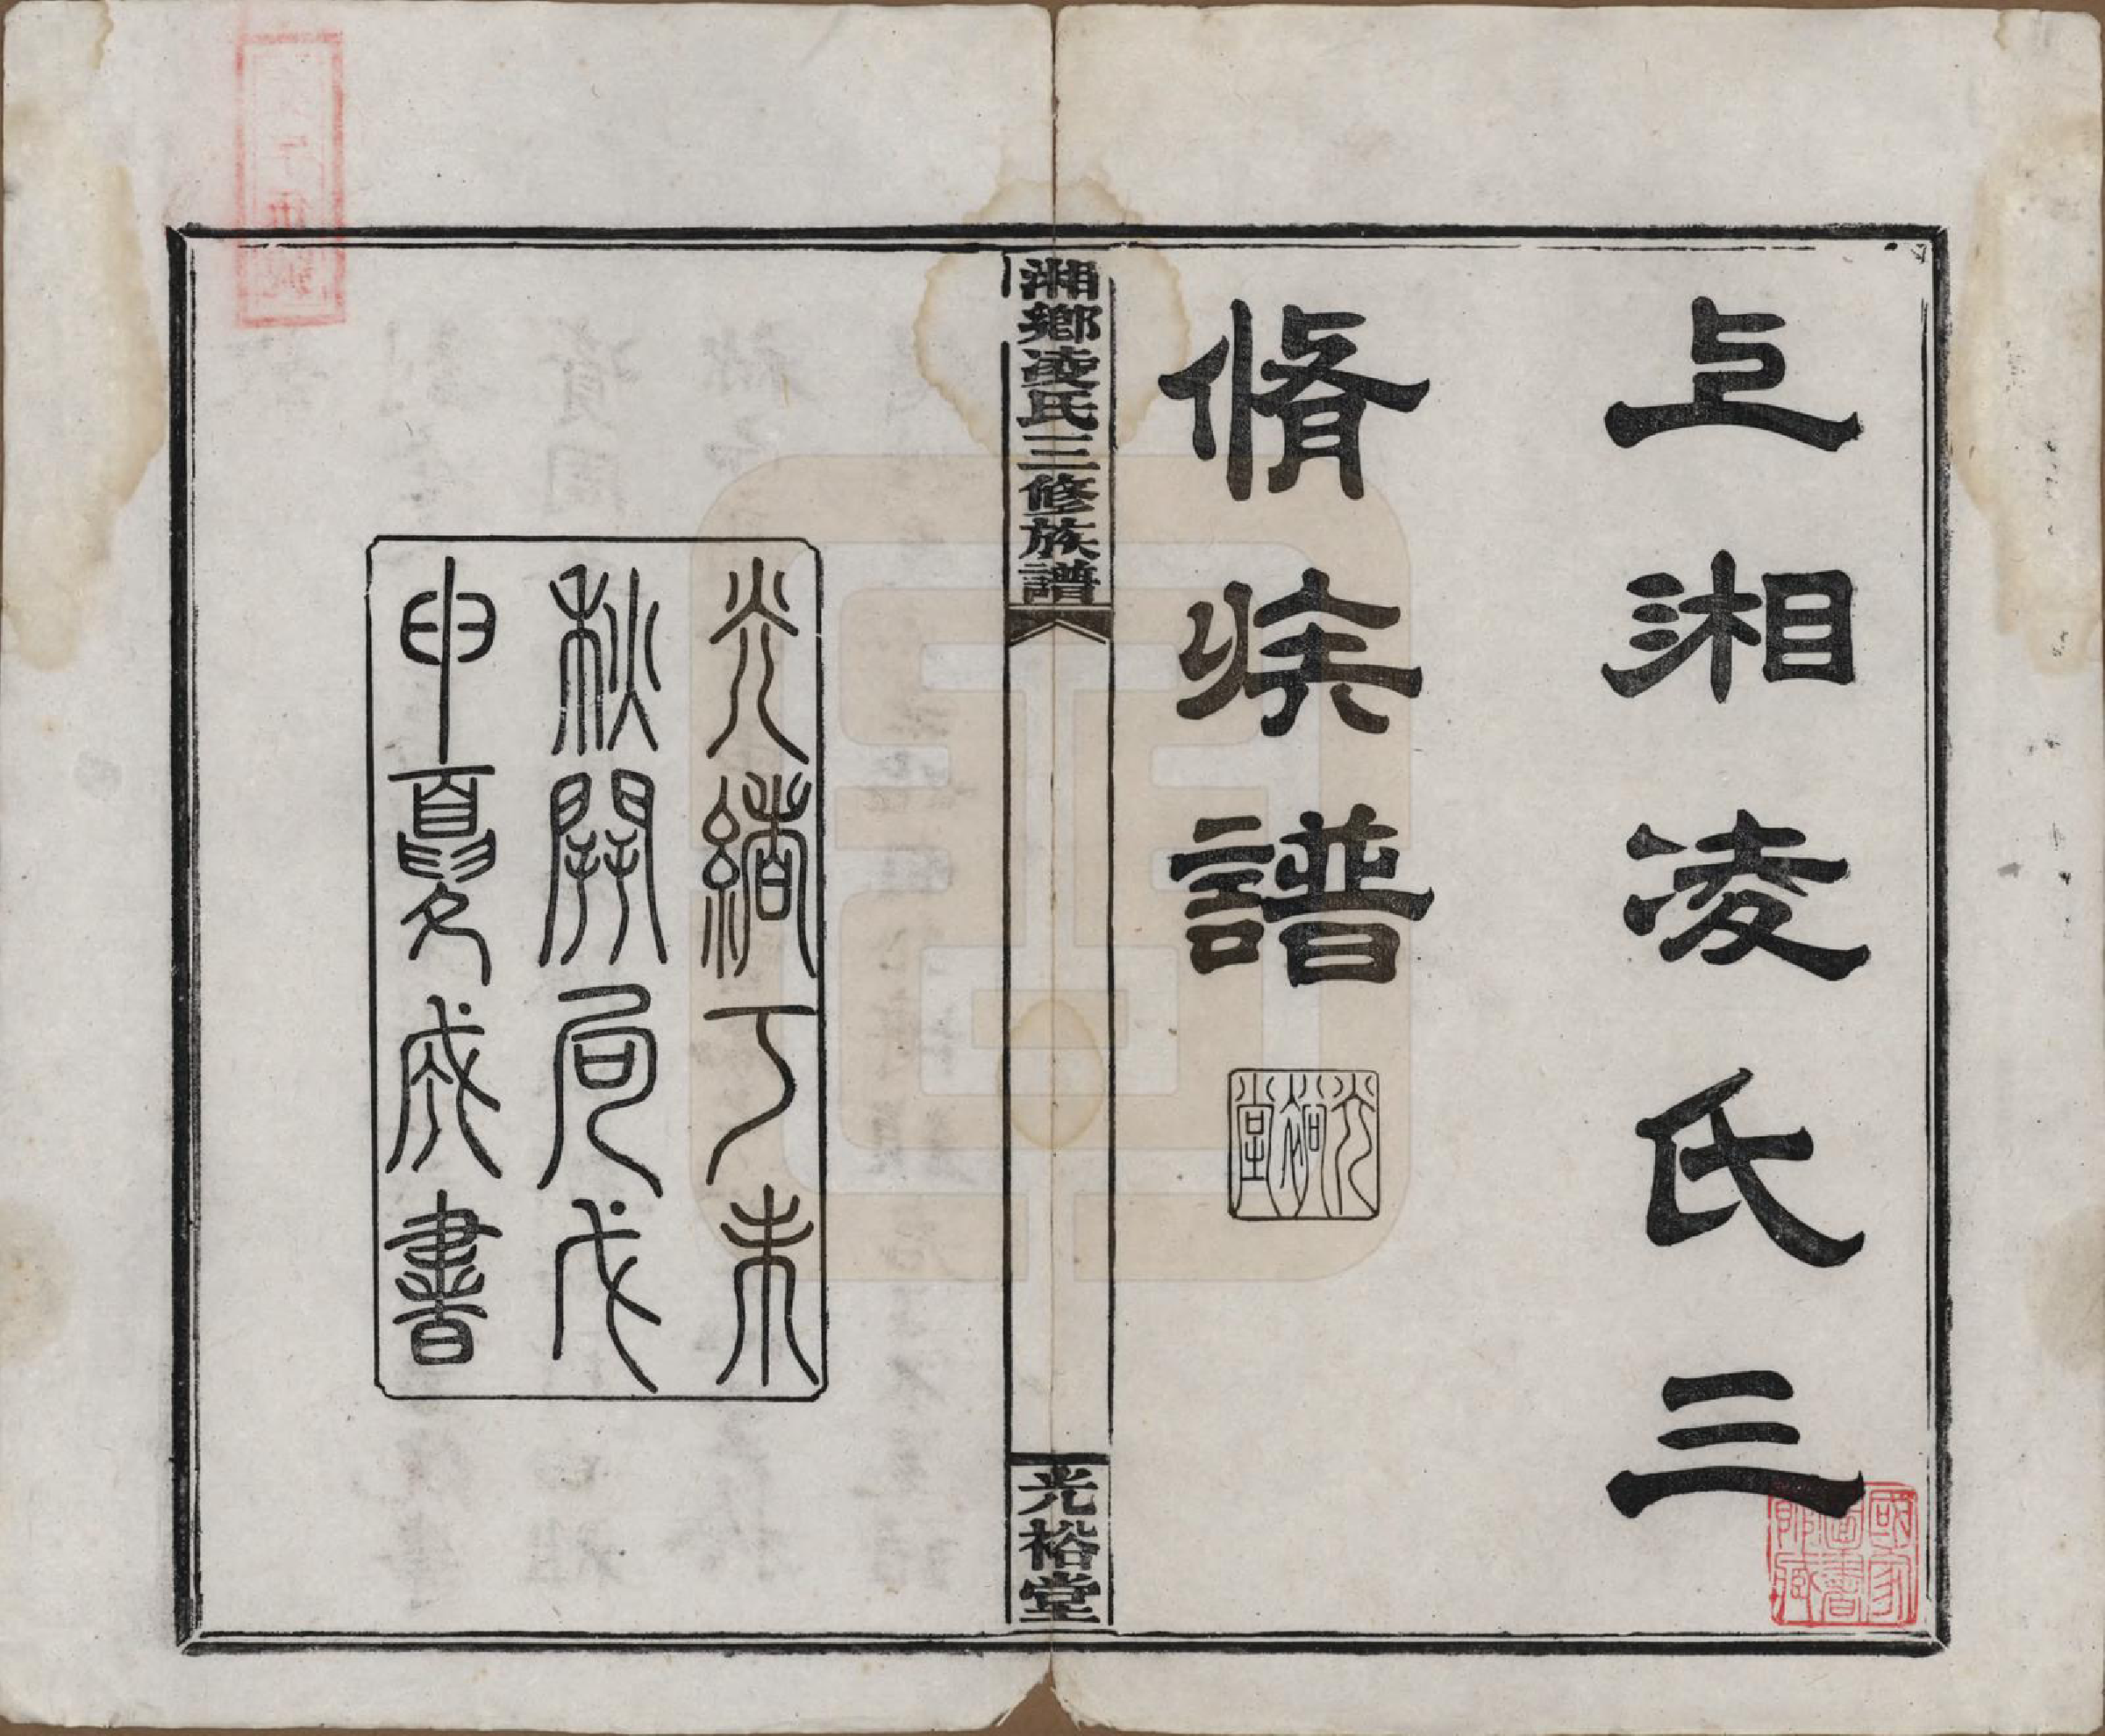 上湘凌氏三
脩族譜
光裕堂
湘鄉凌氏三修族譜
光裕堂
光緒丁未
秋開局戊
申夏成書
國家圖書館藏